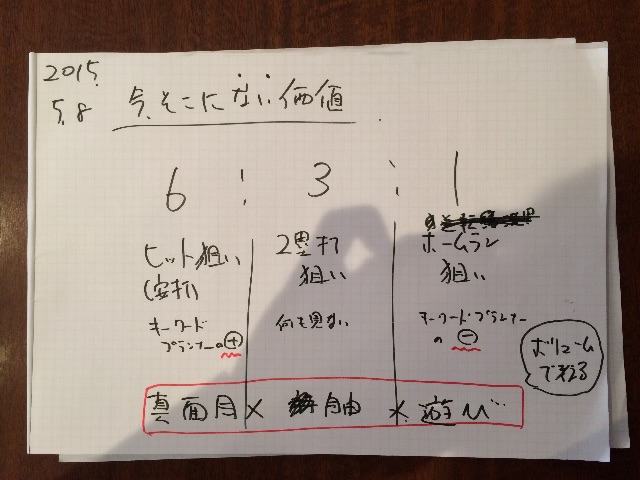 2015.
5.8
今、そこにない価値
6 : 3 : 1
ヒット狙い
(安打)
キーワード
プランナーの⊕
2塁打
狙い
何も見ない
ホームラン
狙い
キーワード・プランナー
の ⊖
ボリューム
で考える
真面目 × 自由 × 遊び